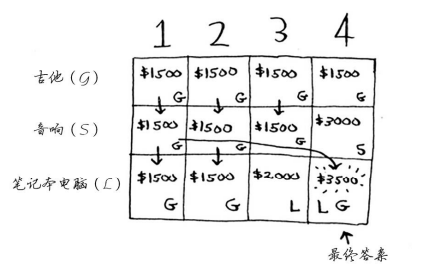 1 2 3 4
吉他(G) $1500 G $1500 G $1500 G $1500 G
音响(S) $1500 G $1500 G $1500 G $3000 S
笔记本电脑(L) $1500 G $1500 G $2000 L $3500 L G
最终答案